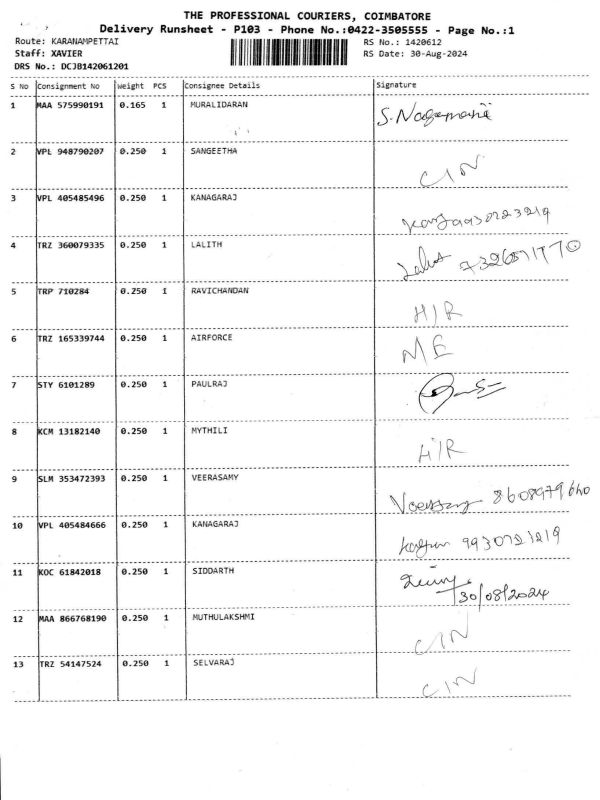 THE PROFESSIONAL COURIERS, COIMBATORE
Delivery Runsheet - P103 - Phone No.:0422-3505555 - Page No.:1
Route: KARANAMPETTAI
RS No.: 1420612
Staff: XAVIER
RS Date: 30-Aug-2024
DRS No.: DCJB142061201
S No Consignment No Weight PCS Consignee Details Signature
1 MAA 575990191 0.165 1 MURALIDARAN S.Nagamani
2 VPL 948790207 0.250 1 SANGEETHA CIN
3 VPL 405485496 0.250 1 KANAGARAJ
4 TRZ 360079335 0.250 1 LALITH
5 TRP 710284 0.250 1 RAVICHANDAN H/R
6 TRZ 165339744 0.250 1 AIRFORCE ME
7 STY 6101289 0.250 1 PAULRAJ
8 KCM 13182140 0.250 1 MYTHILI H/R
9 SLM 353472393 0.250 1 VEERASAMY
10 VPL 405484666 0.250 1 KANAGARAJ
11 KOC 61842018 0.250 1 SIDDARTH
30/08/2024
12 MAA 866768190 0.250 1 MUTHULAKSHMI CIN
13 TRZ 54147524 0.250 1 SELVARAJ CIN